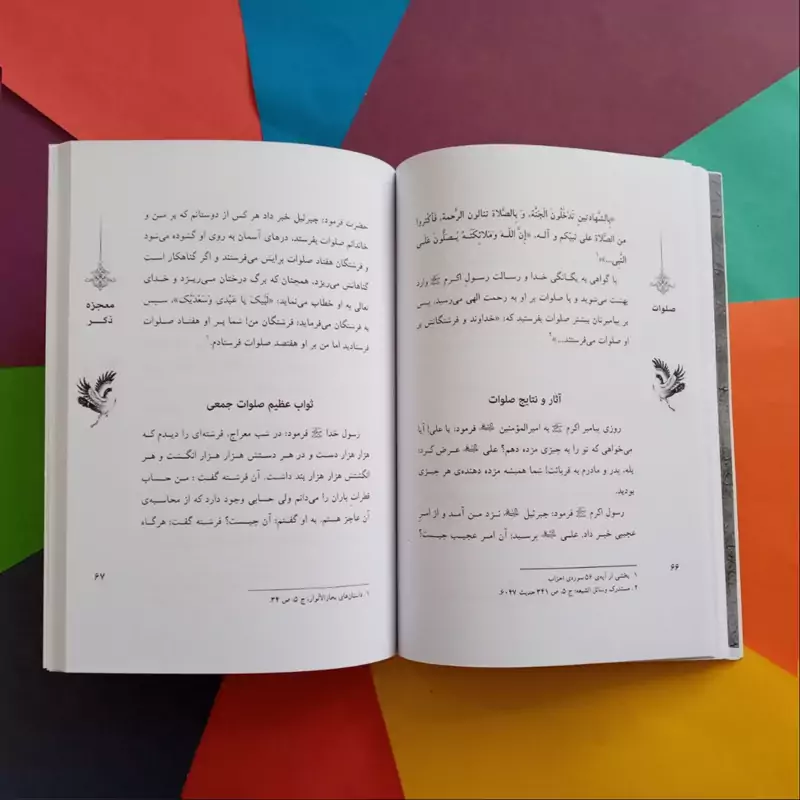 «بِالشَّهادتينِ تَدخُلُونَ الْجَنَّةَ، وَ بِالصَّلَاةِ تنالون الرَّحمة، فَأكثِرُوا
مِن الصَّلاة عَلى نَبيّكم و آلـه، «إنَّ اللَّـهَ وَمَلَائِكَتَـهُ يُـصَلُّونَ عَلَـى
النَّبِي...»¹
با گواهی به یگانگی خدا و رسالت رسول اکرم ﷺ وارد
بهشت می‌شوید و با صلوات بر او به رحمت الهی می‌رسید. پس
بر پیامبرتان بیشتر صلوات بفرستید که: «خداوند و فرشتگانش بر
او صلوات می‌فرستند...»²
آثار و نتایج صلوات
روزی پیامبر اکرم ﷺ به امیرالمؤمنین فرمود: یا علی! آیا
می‌خواهی که تو را به چیزی مژده دهم؟ علی عـرض کرد:
بله، پدر و مادرم به قربانت! شما همیشه مژده دهنده‌ی هر چیزی
بودید.
رسول اکرم ﷺ فرمود: جبرئیل نـزد مـن آمـد و از امـر
عجیبی خبر داد. علـی پرسـید: آن امـر عجیـب چیـست؟
۱. بخشی از آیه‌ی ۵۶ سوره‌ی احزاب
۲. مستدرک وسائل الشیعه: ج ۵، ص ۳۴۱ حدیث ۶۰۴۷.
صلوات
۶۶
حضرت فرمود: جبرئیل خبر داد هر کس از دوستانم که بر من و
خاندانم صلوات بفرستد، درهای آسمان به روی او گشوده می‌شود
و فرشتگان هفتاد صلوات برایش می‌فرستند، و اگر گناهکار است
گناهانش می‌ریزد، همچنان که برگ درختان می‌ریـزد و خـدای
تعالی به او خطاب می‌نماید: «لَبَّیْـکَ یـا عَبْدی وَسَعْدَیْکَ»، سـپس
به فرشتگان می‌فرماید: فرشتگان من! شما بـر او هفتـاد صـلوات
فرستادید اما من بر او هفتصد صلوات فرستادم.¹
ثواب عظیم صلوات جمعی
رسول خدا ﷺ فرمود: در شب معراج، فرشته‌ای را دیـدم کـه
هزار هزار دست و در هـر دسـتش هـزار هـزار انگـشت و هـر
انگشتش هزار هزار بند داشـت. آن فرشـته گفـت : مـن حـساب
قطرات باران را می‌دانم ولی حسابی وجود دارد که از محاسبه‌ی
آن عاجز هستم. به او گفـتم: آن چیـست؟ فرشـته گفـت: هرگاه
۱. داستان‌های بحارالأنوار: ج ۵، ص ۳۴.
معجزه
ذکـر
۶۷